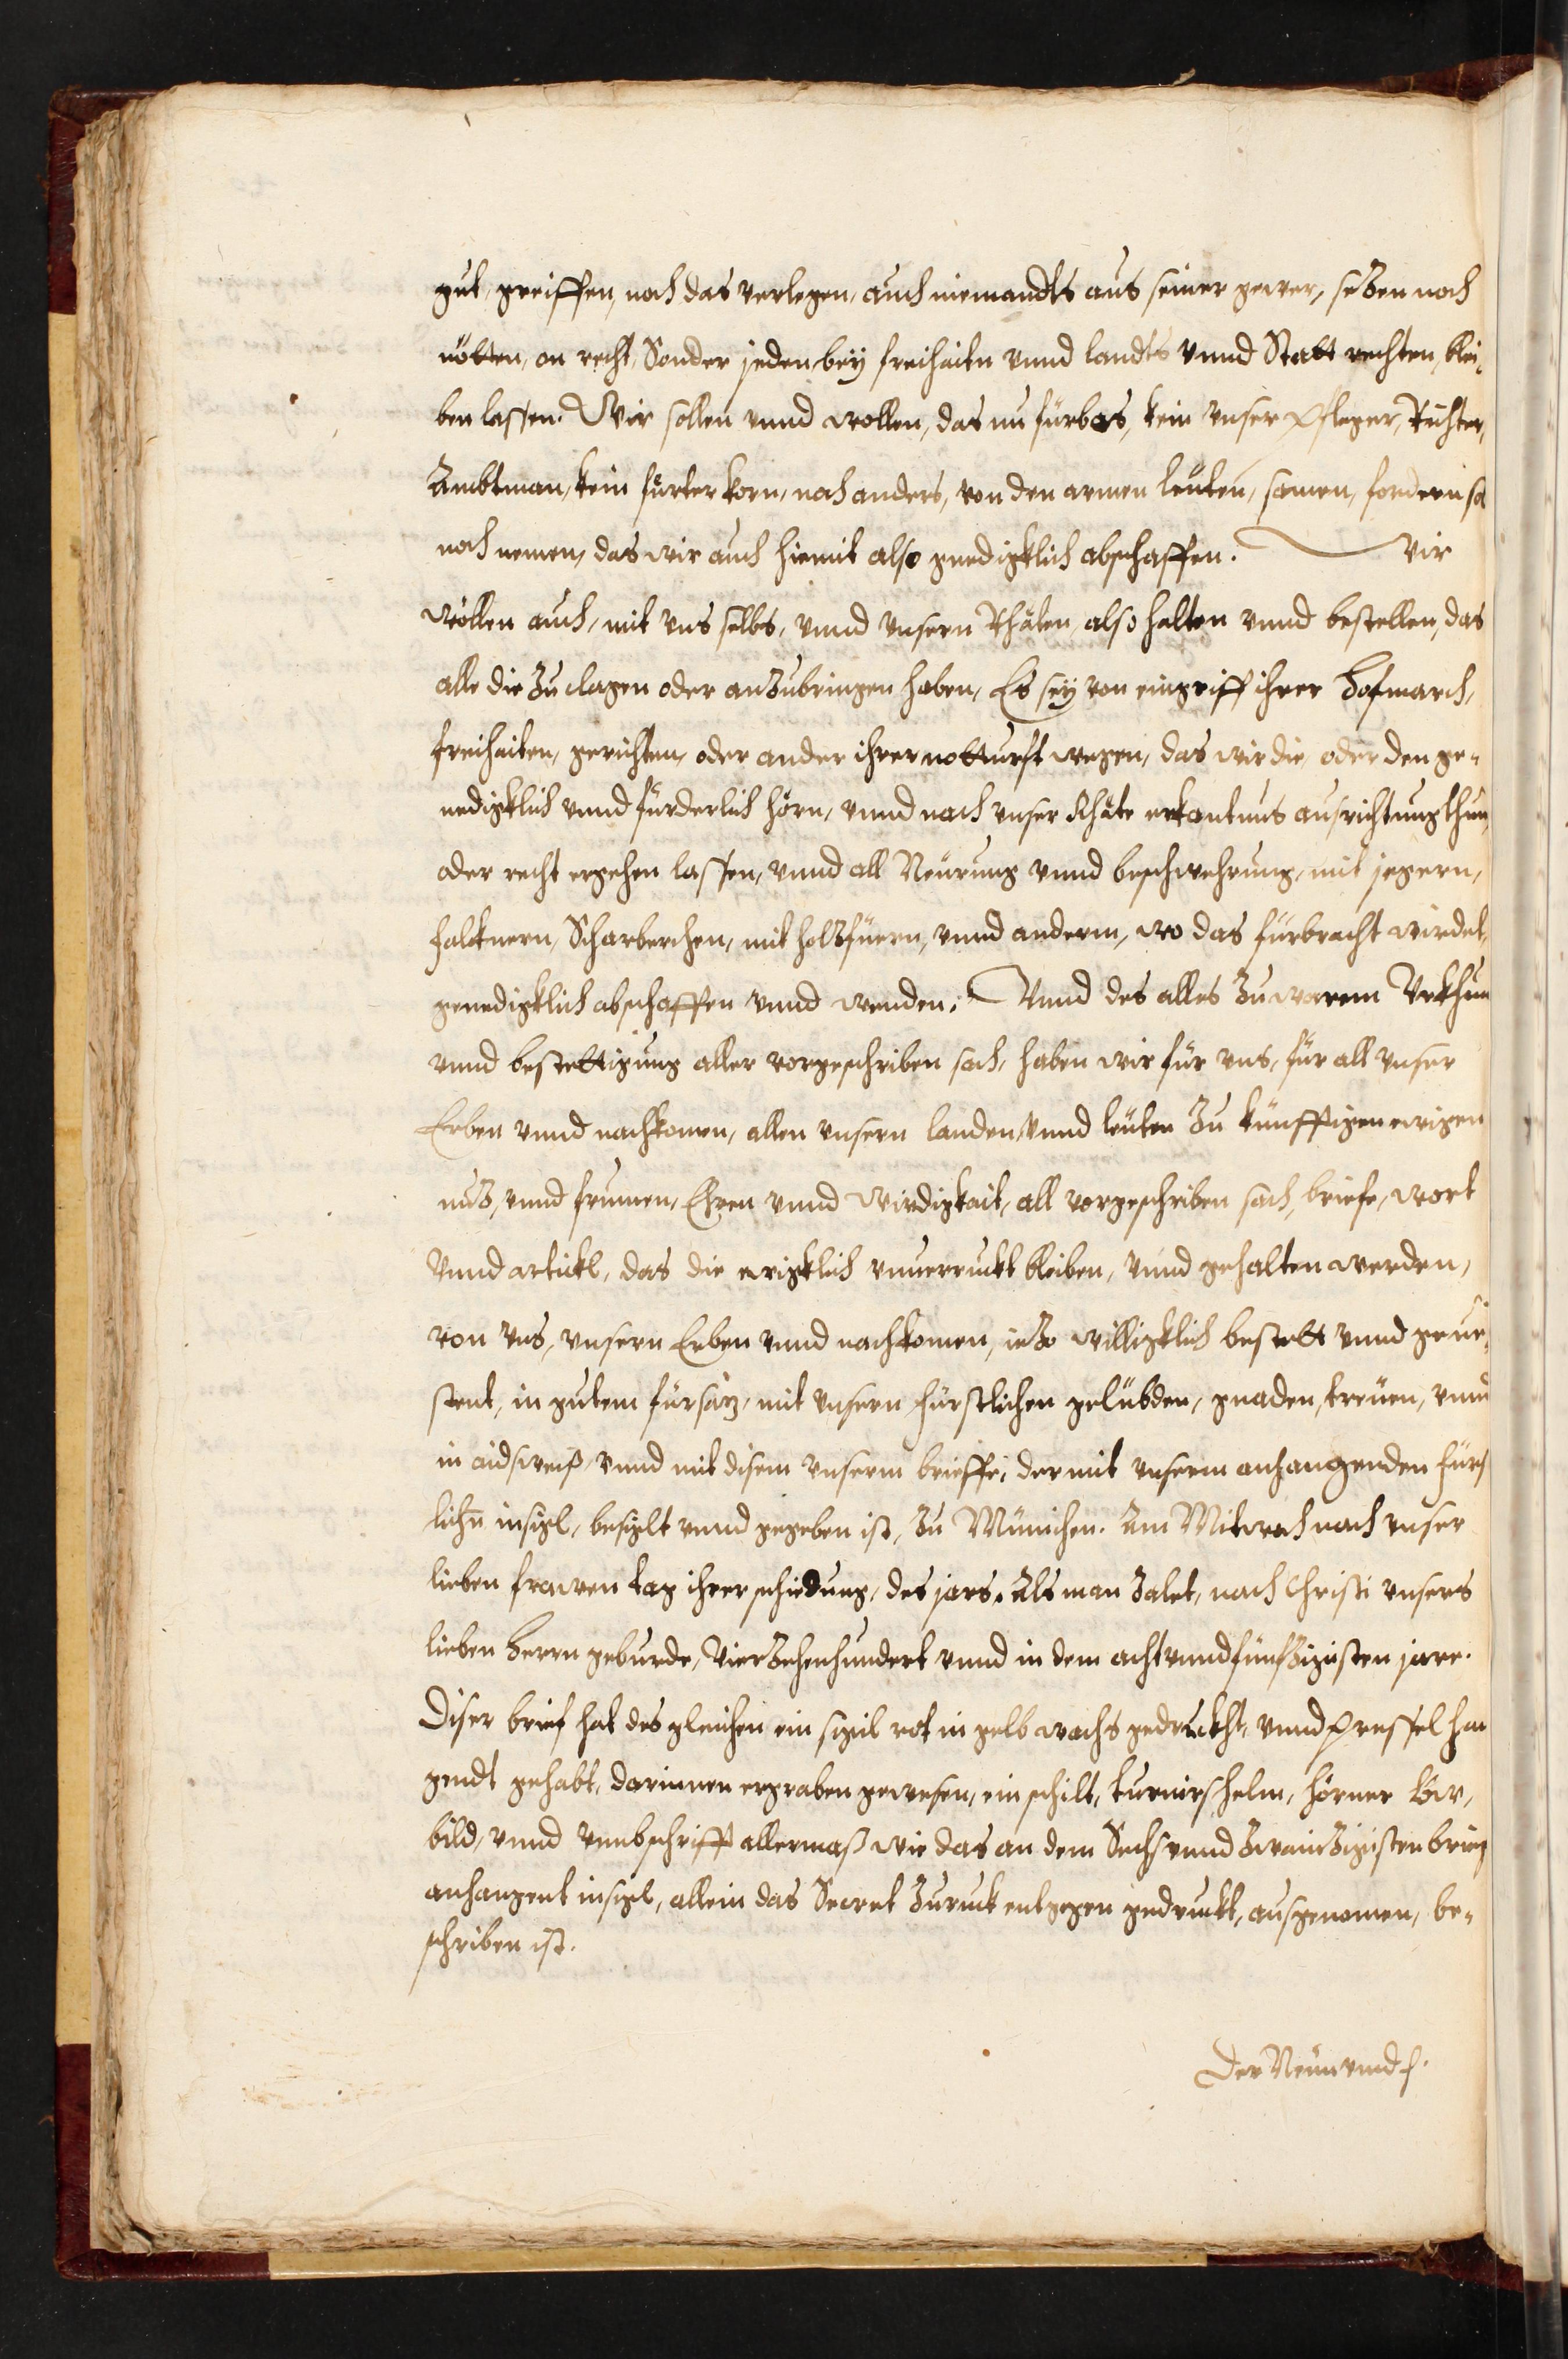 gut, greiffen, noch das verlegen, auch niemandts aus seiner gewer, sezen noch
nötten, on recht, Sonder jeden bey freihaitn vnnd landts vnnd Statt rechten, blei-
ben lassen. Wir sollen vnnd wollen, das nu fürbas, kein vnser Pfleger, Richter,
Ambtman, kein fürter korn, noch anders, von den armen leüten, samen, fordern sol
noch nemen, das wir auch hiemit also gnedigklich abschaffen. Wir
wöllen auch, mit vns selbs, vnnd vnsern Rhäten, also halten vnnd bestellen, das
alle die zu clagen oder anzubringen haben, Es sey von eingriff ihrer Hofmarch,
freihaiten, gerichten, oder ander ihrer notturft wegen, das wir die, oder den ge-
nedigklich vnnd fürderlich hörn, vnnd nach vnser Rhäte erkantnus ausrichtung thun,
oder recht ergehen lassen, vnnd all Neürung vnnd beschwehrung, mit jegern,
falcknern, Scharberchen, mit holzfüern, vnnd anderm, wo das fürbracht wirdet,
genedigklich abschaffen vnnd wenden. Vnnd des alles zu warem Vrkhun
vnnd bestettigung aller vorgeschriben sach, haben wir für vns, für all vnser
Erben vnnd nachkomen, allen vnsern landen, vnnd leüten zu künfftigen ewigen
nuz, vnnd frumen, Ehren vnnd Wirdigkait, all vorgeschriben sach, briefe, wort
vnnd artickl, das die ewigklich vnuerruckt bleiben, vnnd gehalten werden,
von vns, vnsern Erben vnnd nachkomen, iezo willigklich bestett vnnd geue-
stent, in gutem fürsaz, mit vnsern fürstlichen gelübden, gnaden, treüen, vnnd
in aidsweiß, vnnd mit disem vnserm brieffe, der mit vnserm anhangenden fürs
lichn insigl, besiglt vnnd gegeben ist, zu München. Am Mitwoch nach vnser
lieben frawen tag ihrer schiedung, des jars. Als man zalet, nach Christi vnsers
lieben Herrn geburde, Vierzehenhundert vnnd in dem achtvnndfünfzigisten jare.
Diser brief hat des gleichen ein sigil rot in gelb wachs gedruckht, vnnd Pressel han
gendt gehabt, darinnen ergraben gewesen, ein schilt, turnirshelm, hörner Lew,
bild, vnnd vmbschrifft allermaß wie das an dem Sechsvnnd zwainzigisten brief
anhangent insigl, allein das Secret zuruck entgegen gedruckt, ausgenomen, be-
schriben ist.
Der Neünvnnd